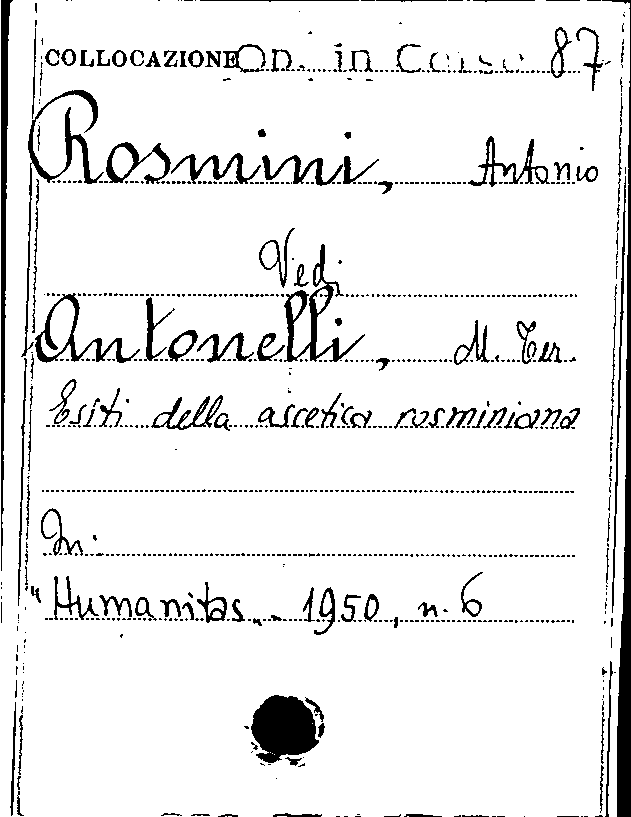 COLLOCAZIONE Op. in Corso 87
Rosmini, Antonio
Vedi
Antonelli, M. Ter.
Esiti della ascetica rosminiana
In:
"Humanitas„ - 1950, n. 6